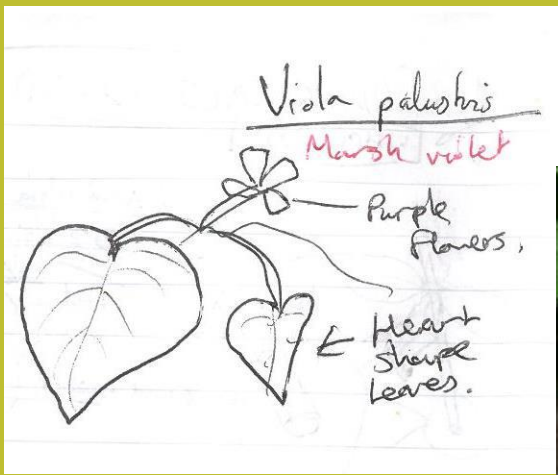 Viola palustris
Marsh violet
Purple
flowers.
Heart
shape
leaves.